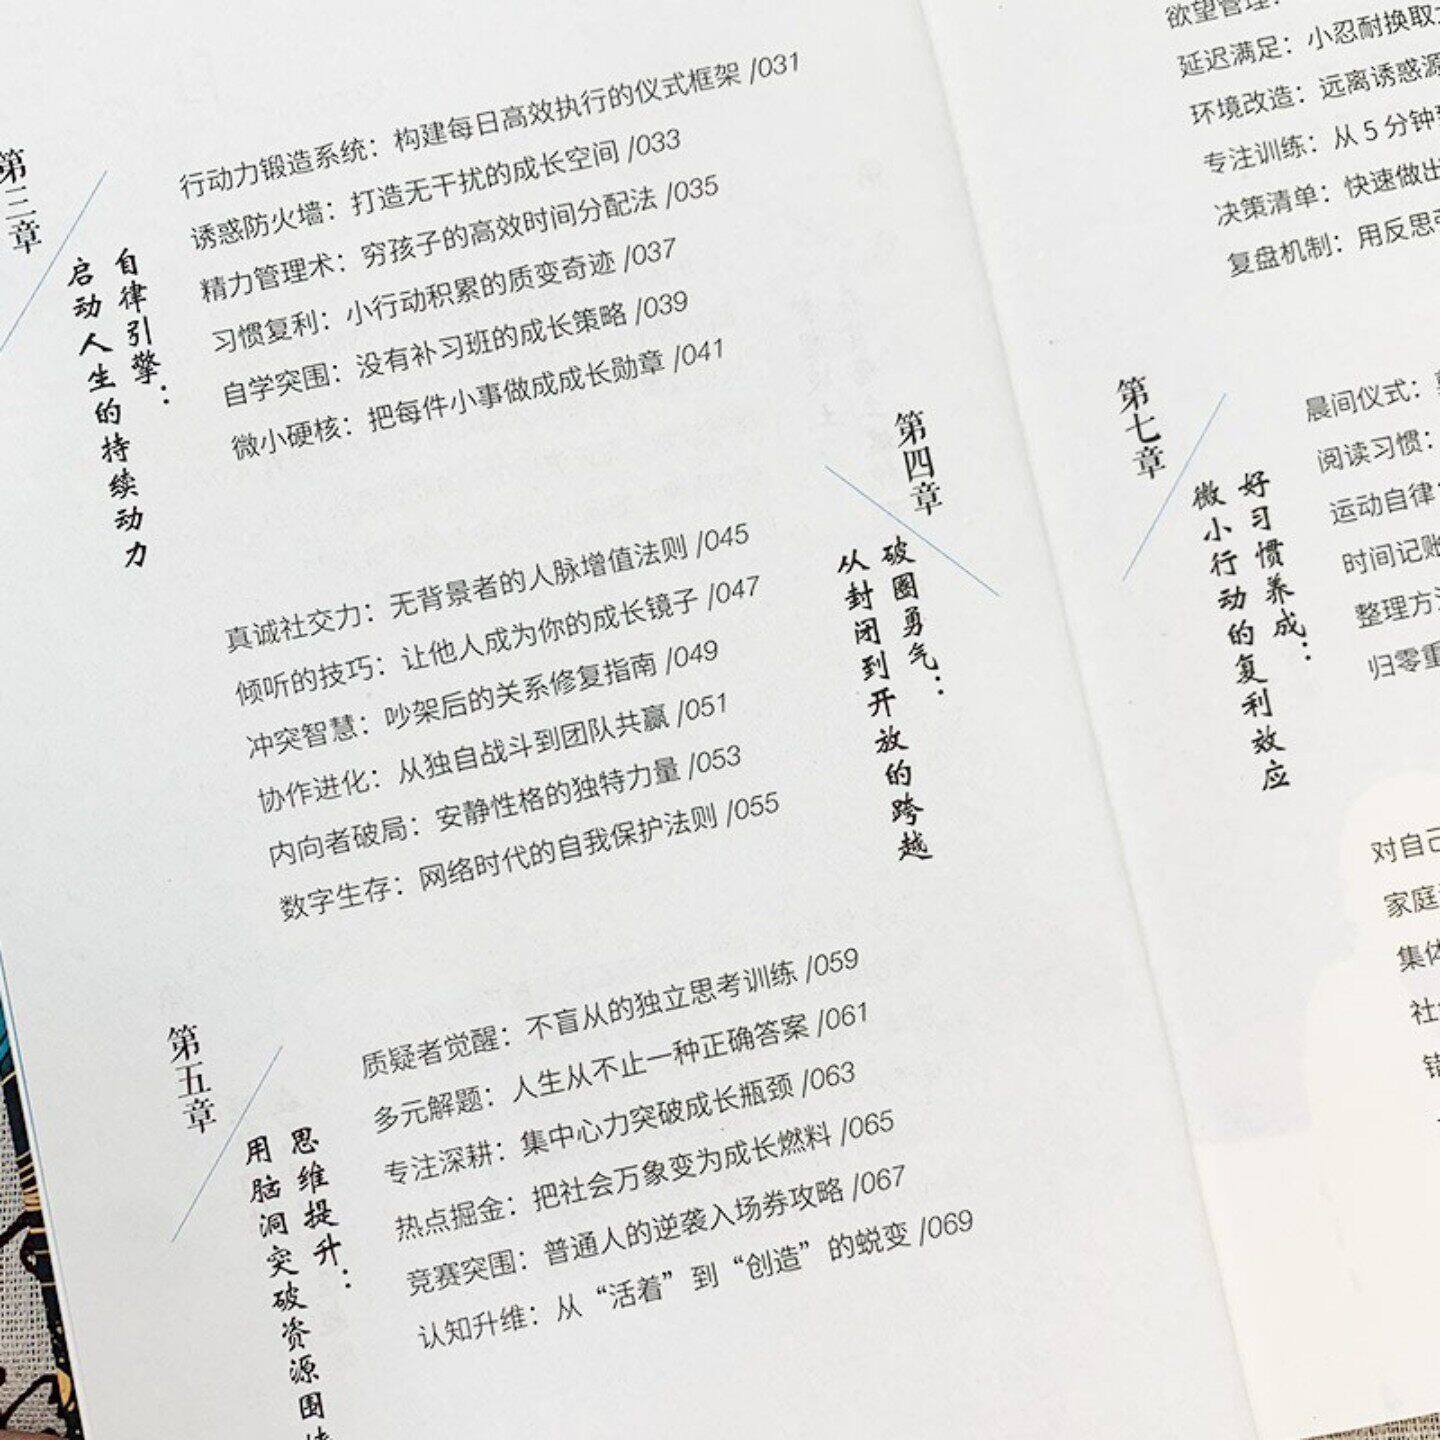 第三章
自律引擎：
启动人生的持续动力
行动力锻造系统：构建每日高效执行的仪式框架 /031
诱惑防火墙：打造无干扰的成长空间 /033
精力管理术：穷孩子的高效时间分配法 /035
习惯复利：小行动积累的质变奇迹 /037
自学突围：没有补习班的成长策略 /039
微小硬核：把每件小事做成成长勋章 /041
第四章
破圈勇气：
从封闭到开放的跨越
真诚社交力：无背景者的人脉增值法则 /045
倾听的技巧：让他人成为你的成长镜子 /047
冲突智慧：吵架后的关系修复指南 /049
协作进化：从独自战斗到团队共赢 /051
内向者破局：安静性格的独特力量 /053
数字生存：网络时代的自我保护法则 /055
第五章
思维提升：
用脑洞突破资源围
质疑者觉醒：不盲从的独立思考训练 /059
多元解题：人生从不止一种正确答案 /061
专注深耕：集中心力突破成长瓶颈 /063
热点掘金：把社会万象变为成长燃料 /065
竞赛突围：普通人的逆袭入场券攻略 /067
认知升维：从“活着”到“创造”的蜕变 /069
欲望管理：
延迟满足：小忍耐换取
环境改造：远离诱惑源
专注训练：从 5 分钟
决策清单：快速做出
复盘机制：用反思
第七章
好习惯养成：
微小行动的复利效应
晨间仪式：
阅读习惯：
运动自律：
时间记账
整理方
归零重
对自己
家庭
集体
社